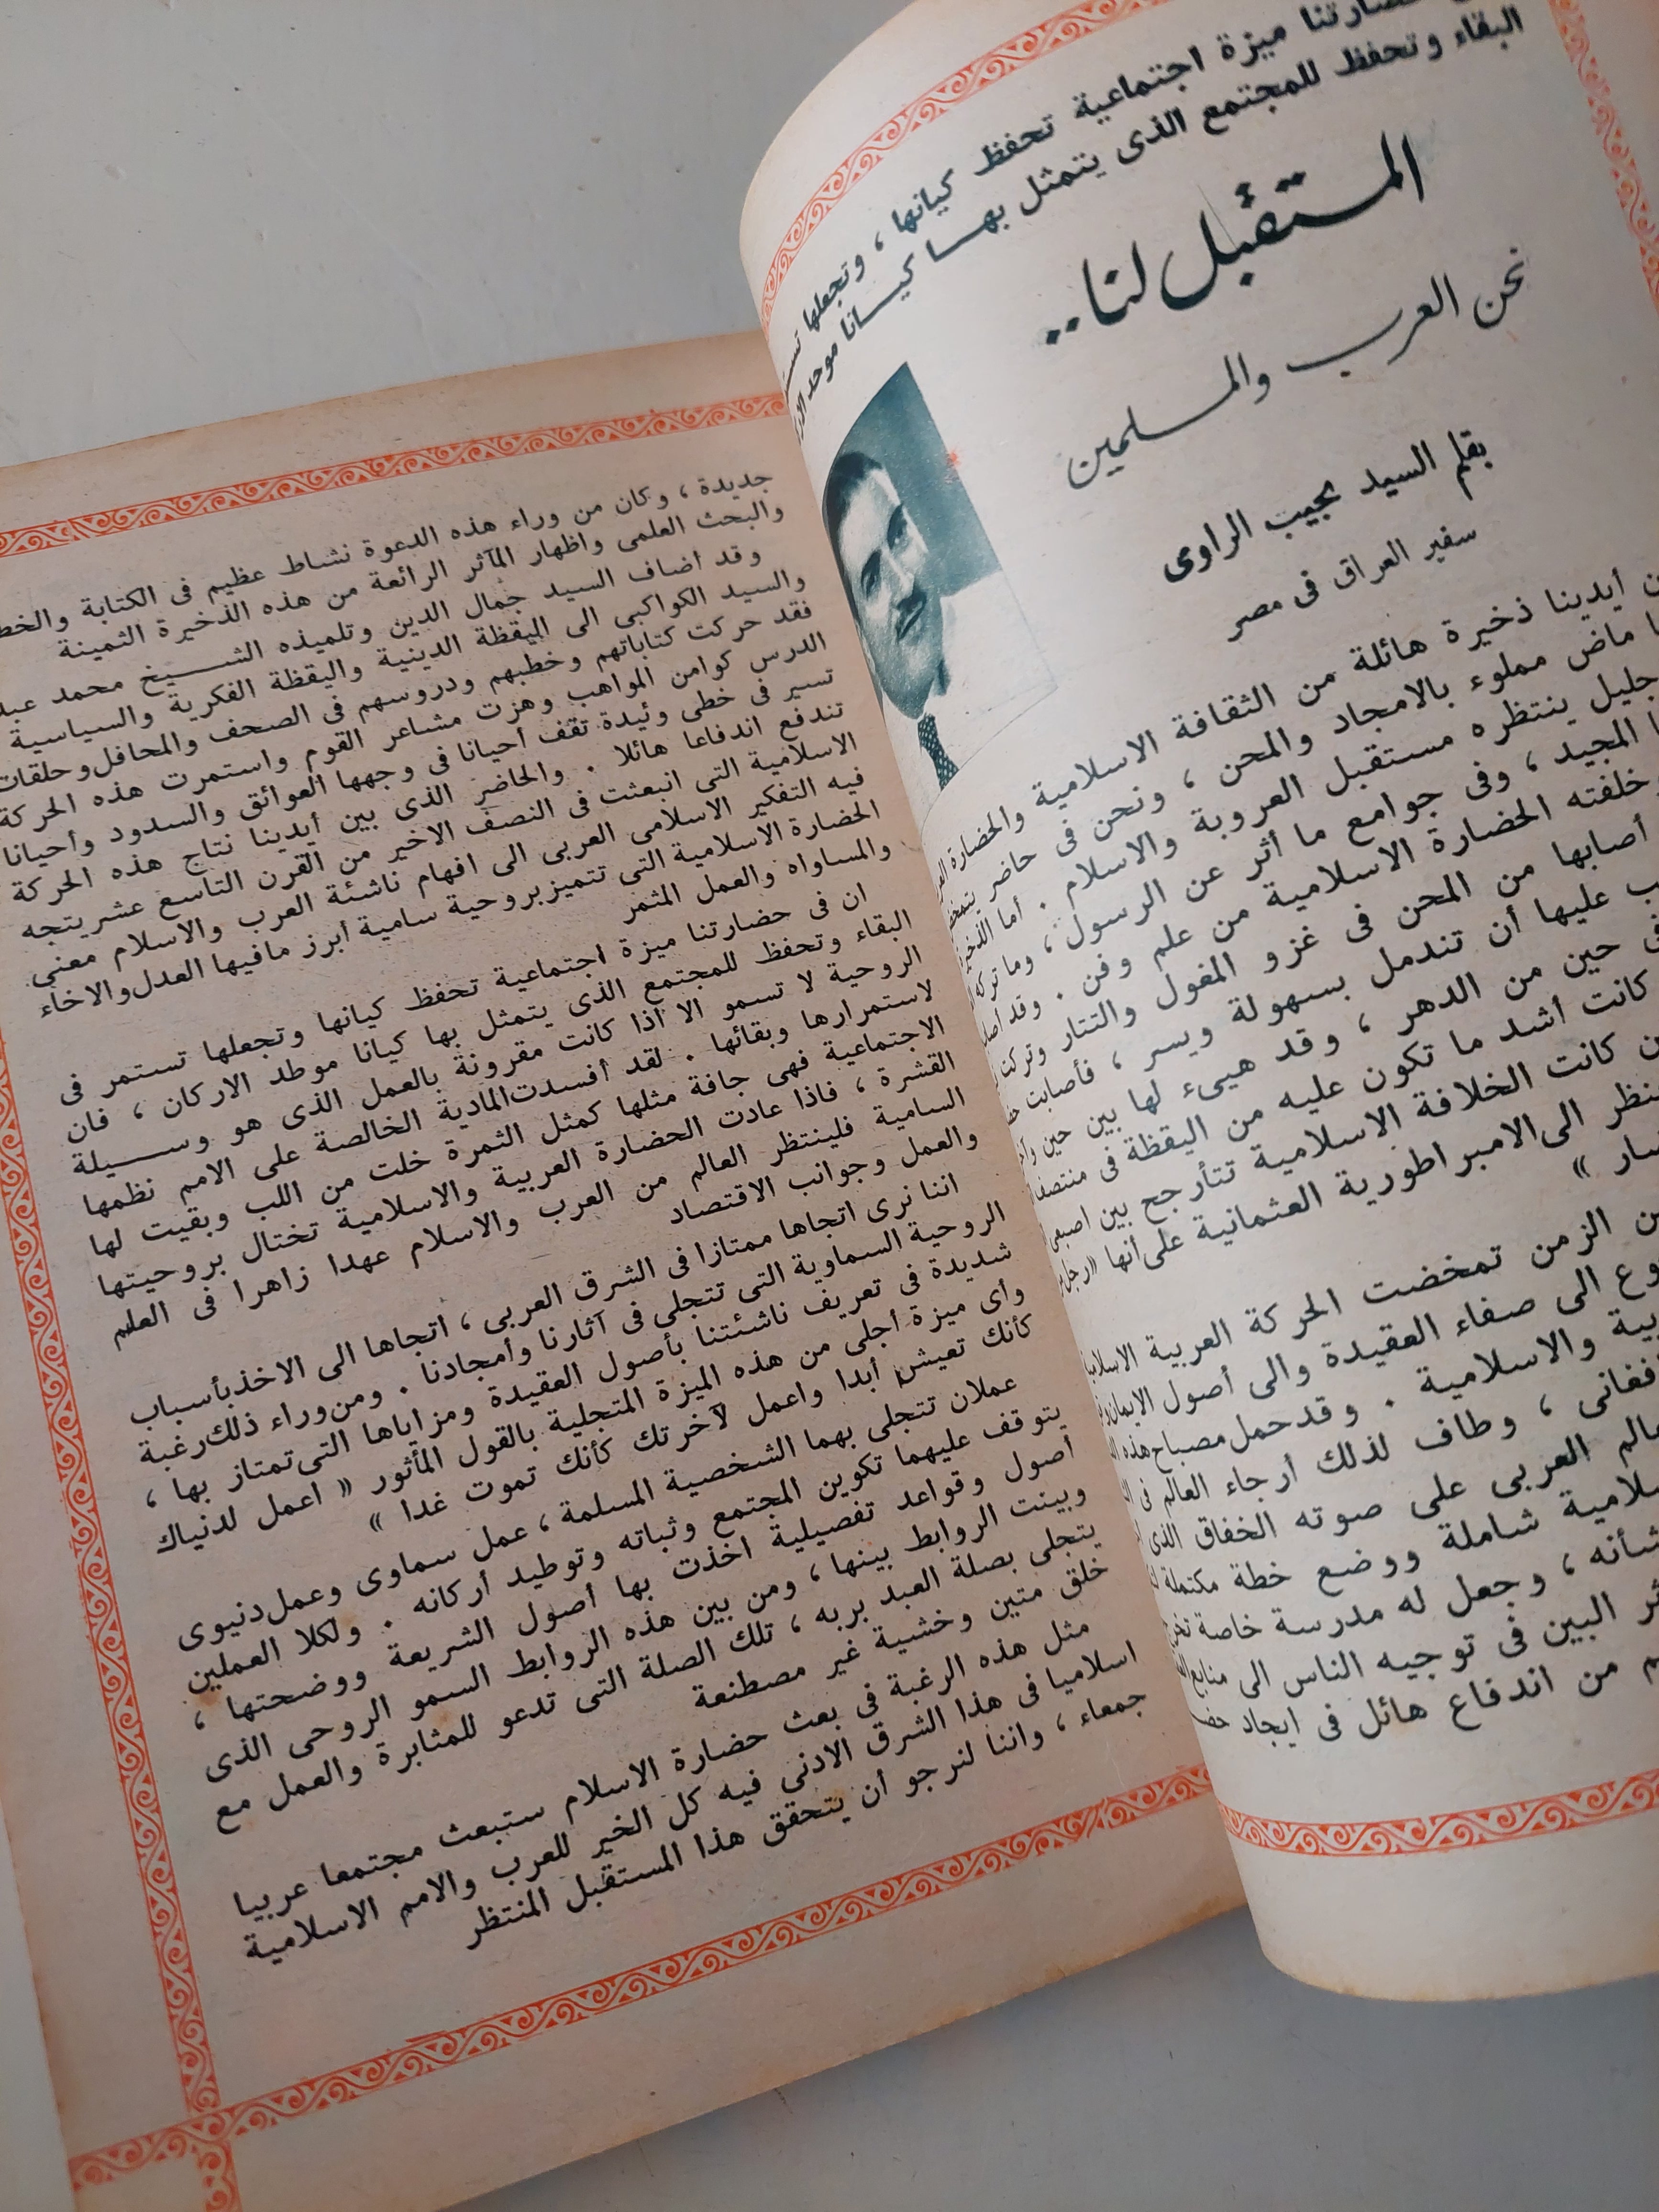 حضارتنا ميزة اجتماعية تحفظ كيانها ، وتجعلها
البقاء وتحفظ للمجتمع الذى يتمثل بهـــا كيـــانا موحد
المستقبل لنا..
نحن العرب والمسلمين
بقلم السيد نجيب الراوى
سفير العراق فى مصر
أيدينا ذخيرة هائلة من الثقافة الاسلامية والحضارة
ماض مملوء بالامجاد والمحن ، ونحن فى حاضر
جليل ينتظره مستقبل العروبة والاسلام . أما
المجيد ، وفى جوامع ما أثر عن الرسول ، وما تركه
خلفته الحضارة الاسلامية من علم وفن . وقد
أصابها من المحن فى غزو المغول والتتار وتركت
عليها أن تندمل بسهولة ويسر ، فأصابت
حين من الدهر ، وقد هيىء لها بين حين
كانت أشد ما تكون عليه من اليقظة فى منتصف
كانت الخلافة الاسلامية تتأرجح بين
الى الامبراطورية العثمانية على أنها «
»
الزمن تمخضت الحركة العربية
الى صفاء العقيدة والى أصول الايمان
والاسلامية . وقد حمل مصباح هذه
، وطاف لذلك أرجاء العالم فى
العربى على صوته الخفاق الذى
شاملة ووضع خطة مكتملة
شأنه ، وجعل له مدرسة خاصة
البين فى توجيه الناس الى منابع
من اندفاع هائل فى ايجاد
جديدة ، وكان من وراء هذه الدعوة نشاط عظيم فى الكتابة
والبحث العلمى واظهار المآثر الرائعة من هذه الذخيرة الثمينة
وقد اضاف السيد جمال الدين وتلميذه الشـــيخ محمد
والسيد الكواكبى الى اليقظة الدينية واليقظة الفكرية والسياسية
فقد حركت كتاباتهم وخطبهم ودروسهم فى الصحف والمحافل وحلقات
الدرس كوامن المواهب وهزت مشاعر القوم واستمرت هذه الحركة
تسير فى خطى وئيدة تقف أحيانا فى وجهها العوائق والسدود وأحيانا
تندفع اندفاعا هائلا . والحاضر الذى بين أيدينا نتاج هذه الحركة
الاسلامية التى انبعثت فى النصف الاخير من القرن التاسع عشر يتجه
فيه التفكير الاسلامى العربى الى افهام ناشئة العرب والاسلام معنى
الحضارة الاسلامية التى تتميز بروحية سامية أبرز مافيها العدل والاخاء
والمساواه والعمل المثمر
ان فى حضارتنا ميزة اجتماعية تحفظ كيانها وتجعلها تستمر فى
البقاء وتحفظ للمجتمع الذى يتمثل بها كيانا موطد الاركان ، فان
الروحية لا تسمو الا اذا كانت مقرونة بالعمل الذى هو وســـيلة
لاستمرارها وبقائها . لقد أفسدت المادية الخالصة على الامم نظمها
الاجتماعية فهى جافة مثلها كمثل الثمرة خلت من اللب وبقيت لها
القشرة ، فاذا عادت الحضارة العربية والاسلامية تختال بروحيتها
السامية فلينتظر العالم من العرب والاسلام عهدا زاهرا فى العلم
والعمل وجوانب الاقتصاد
اننا نرى اتجاها ممتازا فى الشرق العربى ، اتجاها الى الاخذ بأسباب
الروحية السماوية التى تتجلى فى آثارنا وأمجادنا . ومن وراء ذلك رغبة
شديدة فى تعريف ناشئتنا بأصول العقيدة ومزاياها التى تمتاز بها ،
وأى ميزة أجلى من هذه الميزة المتجلية بالقول المأثور « اعمل لدنياك
كأنك تعيش أبدا واعمل لآخرتك كأنك تموت غدا »
عملان تتجلى بهما الشخصية المسلمة ، عمل سماوى وعمل دنيوى
يتوقف عليهما تكوين المجتمع وثباته وتوطيد أركانه . ولكلا العملين
أصول وقواعد تفصيلية اخذت بها أصول الشريعة ووضحتها ،
وبينت الروابط بينها ، ومن بين هذه الروابط السمو الروحى الذى
يتجلى بصلة العبد بربه ، تلك الصلة التى تدعو للمثابرة والعمل مع
خلق متين وخشية غير مصطنعة
مثل هذه الرغبة فى بعث حضارة الاسلام ستبعث مجتمعا عربيا
اسلاميا فى هذا الشرق الادنى فيه كل الخير للعرب والامم الاسلامية
جمعاء ، واننا لنرجو أن يتحقق هذا المستقبل المنتظر